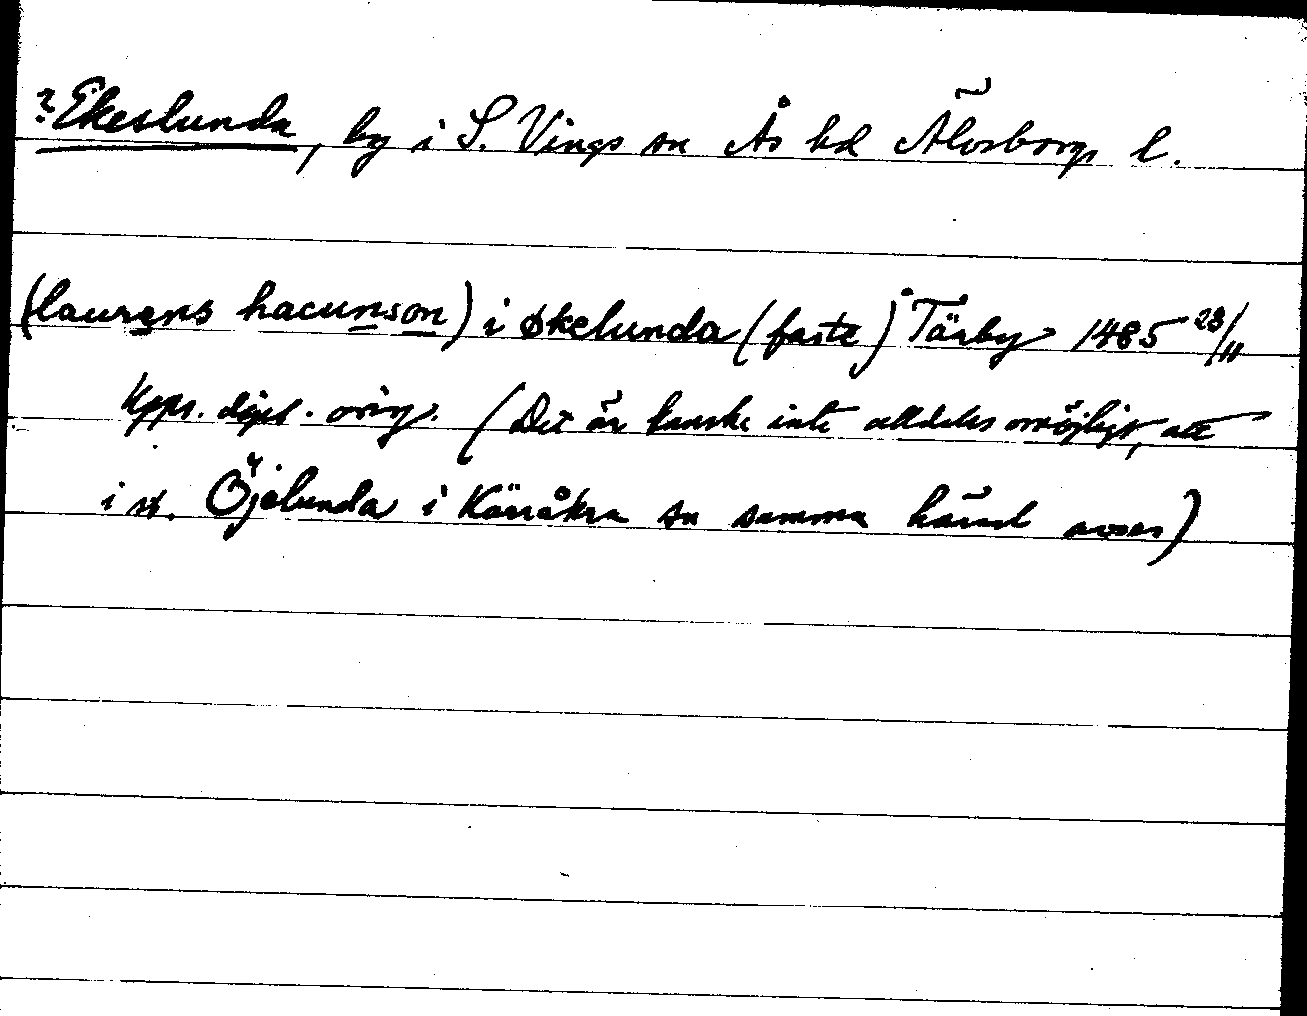 ? Ekeslunda, by i S. Vings sn Ås hd Älvsborgs l.
(laurens hacunson) i økelunda (faste) Tärby 1485 23/11
Uppr. dipl. orig. (Det är kanske inte alldeles omöjligt, att
i st. Öjelunda i Kärråkra sn samma härad avses)